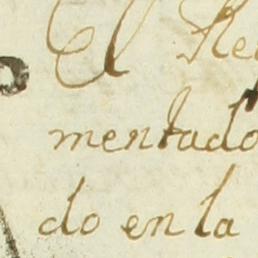 El Re
mentado
do en la